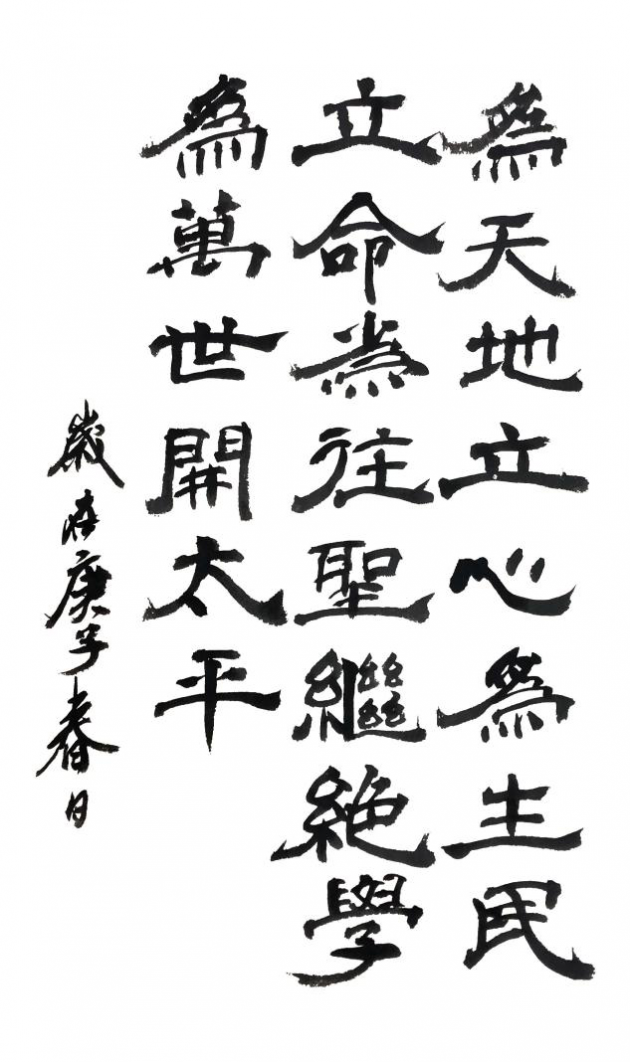 為天地立心為生民
立命為往聖繼絕學
為萬世開太平
歲在庚子春日